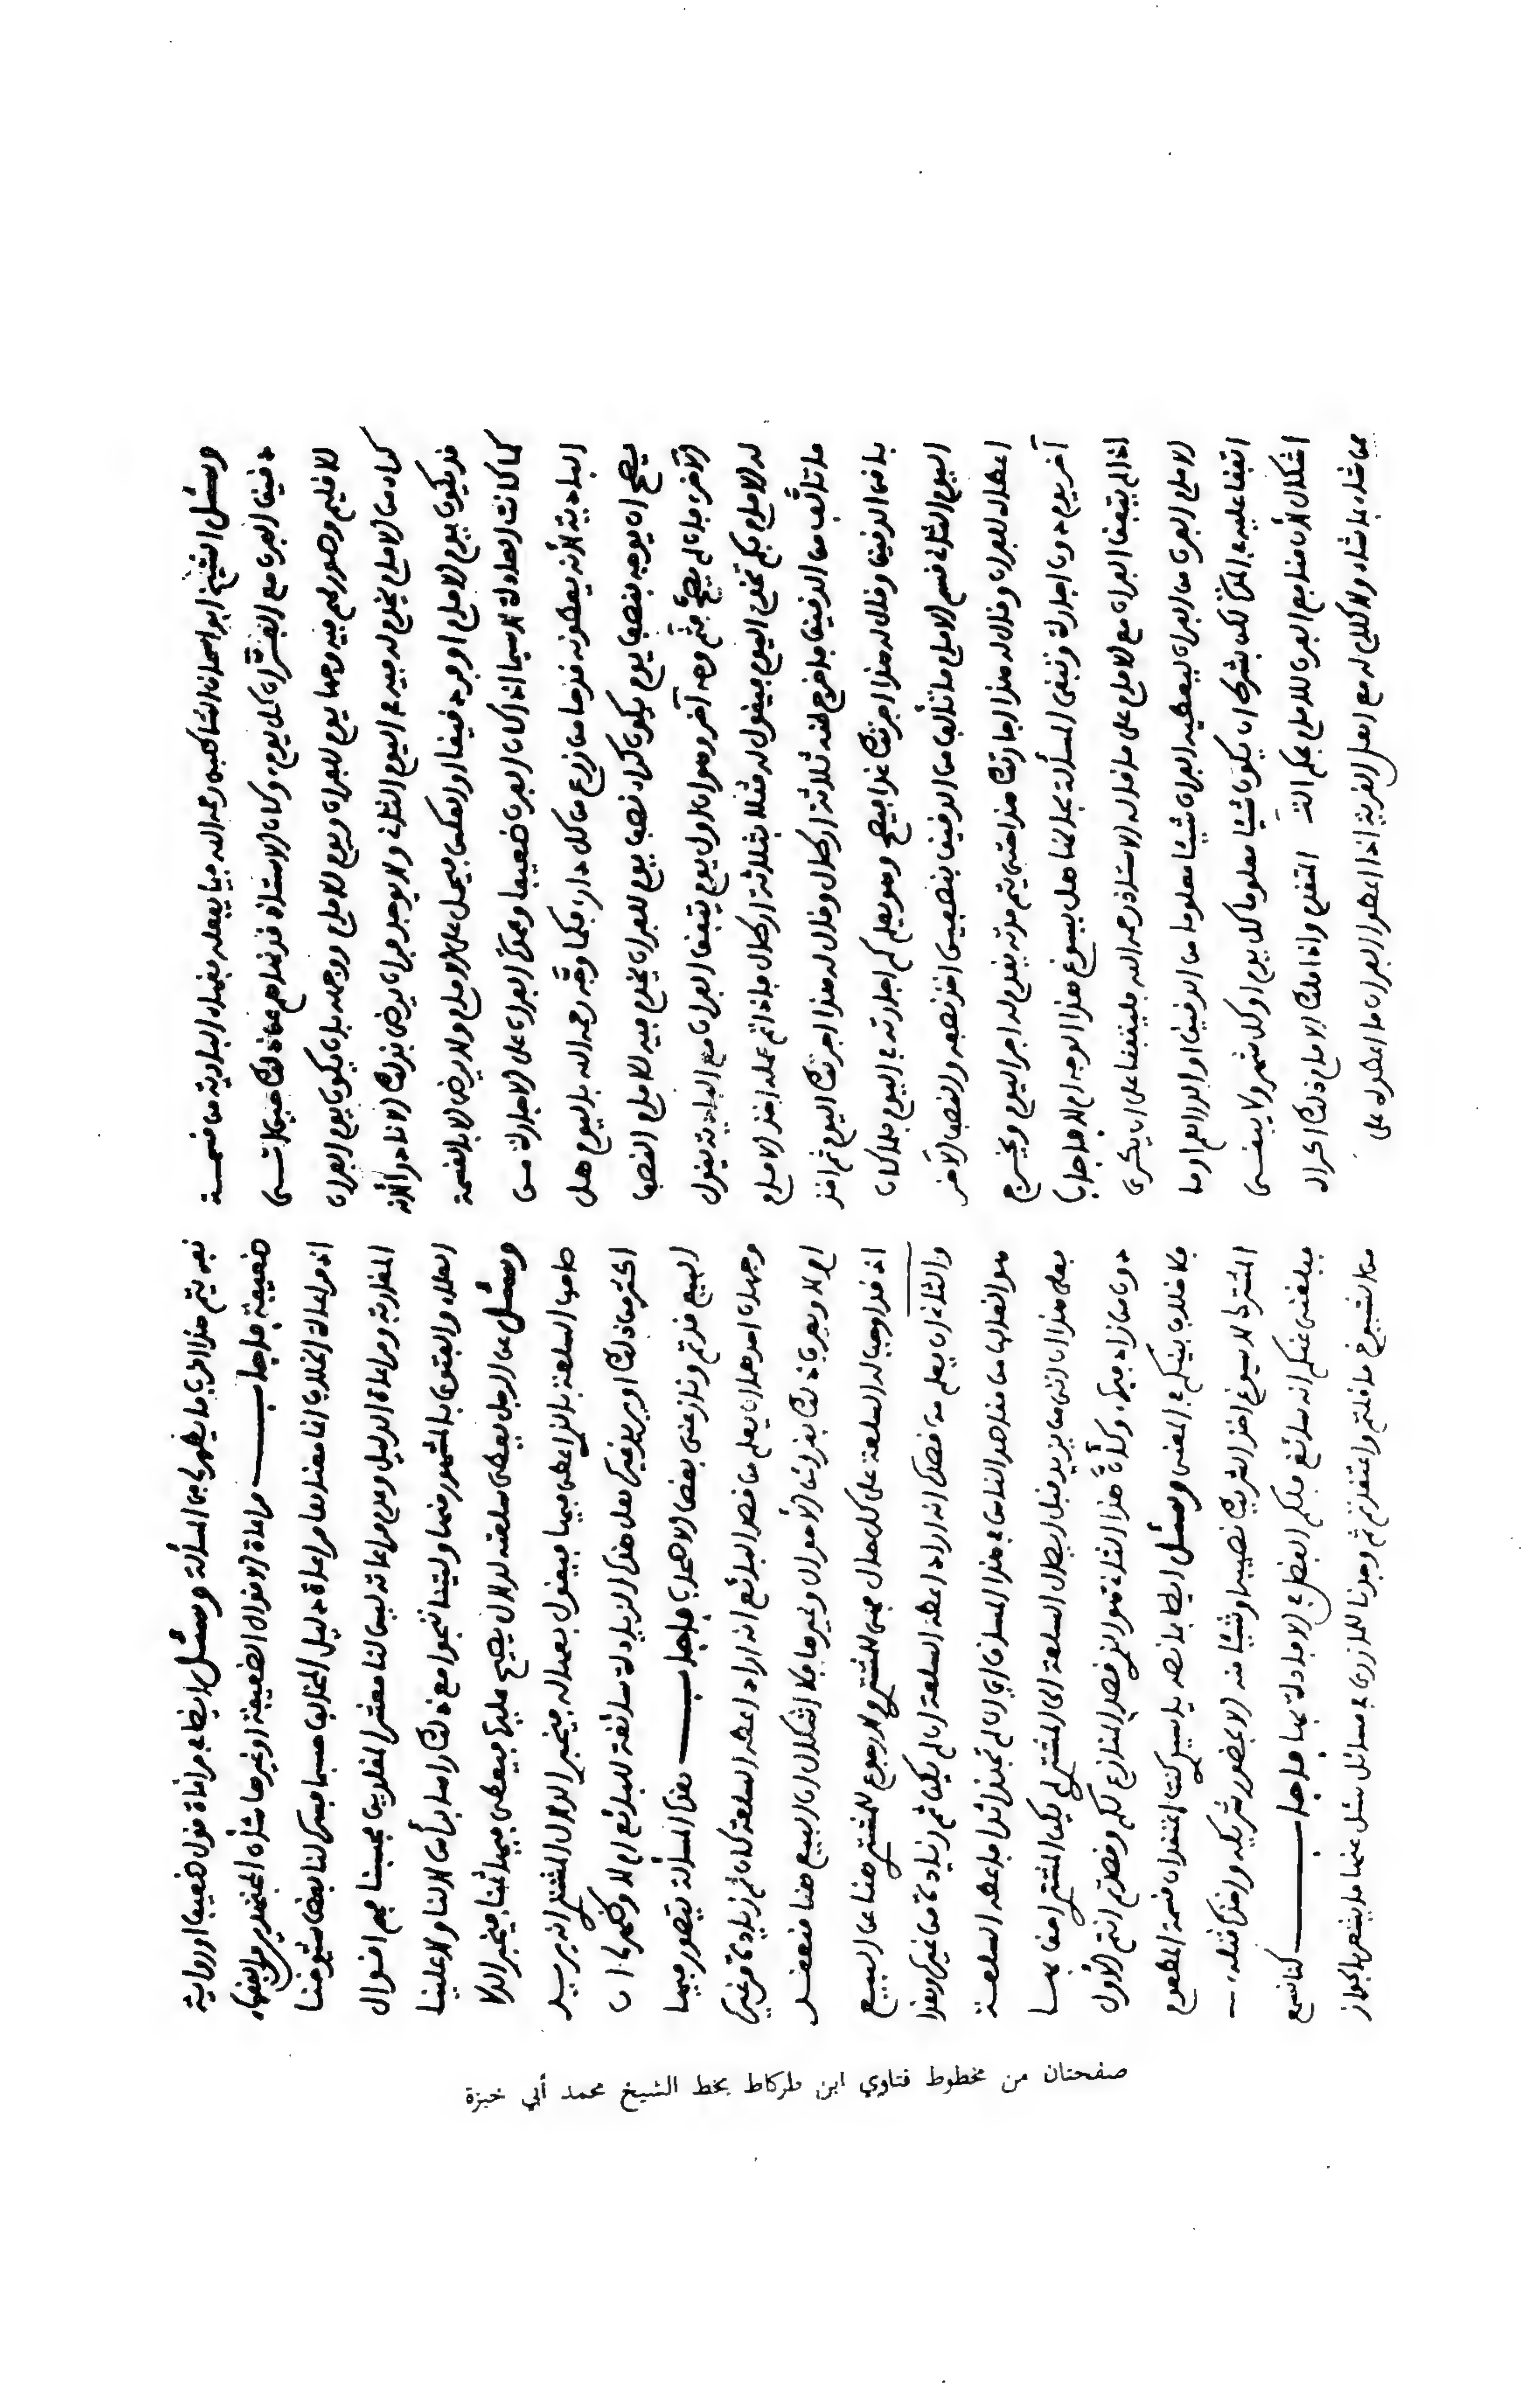 وسئل الشيخ ابو اسحاق الشاطبي رحمه الله فيما يفعله فقهاء البادية من قسمة
دقيق الفرن مع الفرّان كل يوم، وكان الاستاذ قد نهاهم عن ذلك حيث اتى
للاقليم وصور لهم فيه وجها يوم للفران ويوم للامام ووجهه بان يكون يوم الفران
كراء من الامام يخدم له فيه في اليوم الثاني ولا يوجد فران يرضى بذلك الا نادرا لأنه
قد يكون يوم الامام اوجد دقيقا او العكس فيحمل على الامام ولا يرضى الا بالقسمة
كما كانت العادة لا سيما اذا كان الفرن ضعيفا وعمدة الفران على الاجارة من
البادية لأنه يعطونه قدحا من زرع من كل دار، فكما وجّه رحمه الله باليوم هل
يصح ان يوجه بنصف يوم فيكون كراء نصف يوم للفران يخدم فيه للامام النصف
الآخر، فان لم يصحّ فثم وجه آخر وهو ان اول يوم يتفق الفران مع البادية يقول
له الامام بكم تخدم اليوم فيقول له مثلا بثلاثة ارطال فاذا تم عمله اخذ الامام
ما تألّف من الدقيق فاخرج منه ثلاثة ارطال وقال له هذا اجرتك اليوم ثم اخذ
باقي الدقيق وقال له هذا اجرتك غدا فيصح وهو يعلم كم اجارته في اليوم فلما كان
اليوم الثاني قسم الامام ما تألف من الدقيق بنصفين اخذ نصفه والنصف الآخر
اعطاه للفران وقال له هذا اجارتك هذا حتى يتم مدته يقدم له اجر اليوم ويخرج
آخر يوم دون اجارة وتبقى المسألة بحالها هل يسوغ هذا الوجه ام لا فاجاب
اذا لم يتفق الفران مع الامام على ما قال له الاستاذ رحمه الله فليتفقا على ان يكري
الامام الفرن من الفران ليعطيه الفران شيئا معلوما من الدقيق او الدراهم او ما
اتفقا عليه في المدة لكن بشرط ان يكون شيئا معلوما كل يوم او كل شهر ولا يبقى
اشكال لأن منافع الفرن للامام بحكم المتقدم واذا ملك الامام ذلك اكراه
ممن شاء بما شاء ولا كلام له مع اهل القرية اذا اعطوا الفران ما اعطوه على
نعم يتم هذا فربما يظهر من المسألة وسئل ايضا في مراعاة قول ضعيف او رواية
ضعيفة فاجاب مراعاة الاقوال الضعيفة او غيرها شأن المجتهدين من الفقهاء
اذ مراعاة الخلاف انما معناها مراعاة دليل المخالف حسبما فسره لنا بعض شيوخنا
المغاربة ومراعاة الدليل وعدم مراعاته ليس لنا معشر المقلدين فحسبنا فهم اقوال
العلماء والفتوى بالمشهور منها وليتنا ننجوا مع ذلك راسا برأس لا لنا ولا علينا
وسئل عن الرجل يعطي سلعته لدلال يصيح عليها فيعطى فيها ثمنا فيخبر الدلال
صاحب السلعة بالذي اعطي فيها فيقول بعها له فيخبر الدلال المشتري انه يريد
اكثر من ذلك او يزيد غيره هل هذه الزيادة سائغة للبائع ام لا
البيع قد تم ونازعني بعض الاصحاب فاجاب هذه المسألة يتصور فيها
وجهان احدهما ان يعلم من قصد البائع انه اراد اعطاء السلعة كان ثم زيادة من غيره
ام لا ويعرف ذلك بقرائن الاحوال وغيرها فلا اشكال ان البيع هنا منعقد
اذ قد اوجب له السلعة على كل حال فمتى للمشتري لا رجوع للمشتري هنا عن البيع
والثاني ان يعلم من قصده انه اراد اعطاء السلعة ان لم يكن ثم زيادة من غيره وهذا
هو الغالب من مقاصد الناس في هذا المساق اي ان لم تجد زائدا فاعطه السلعة
فعلى هذا ان اتى من يزيد قبل ايصال السلعة الى المشتري لم يكن المشتري احق بها
دون من زاد فيها، وكأنّ هذا الثاني هو الذي قصد المنازع لكم وقصدتم انتم الأول
فلا خلاف بينكم في المعنى وسئل ايضا بما نصه يا سيدي كنت اعتقد ان قسمة الطعام
المشترك لا يسوغ اخذ الشريك نصيبه او شيئا منه الا بحضور شريكه واخذه مثله،
فبلغني عنكم انه سائغ فلكم الفضل في الافادة بها فاجاب كنا نسمع
من الشيوخ ما قلتم واعتقدتم ثم وجدنا للمازري في مسائل سئل عنها ما يشعر بالجواز
صفحتان من مخطوط فتاوي ابن طركاط بخط الشيخ محمد أبي خبزة